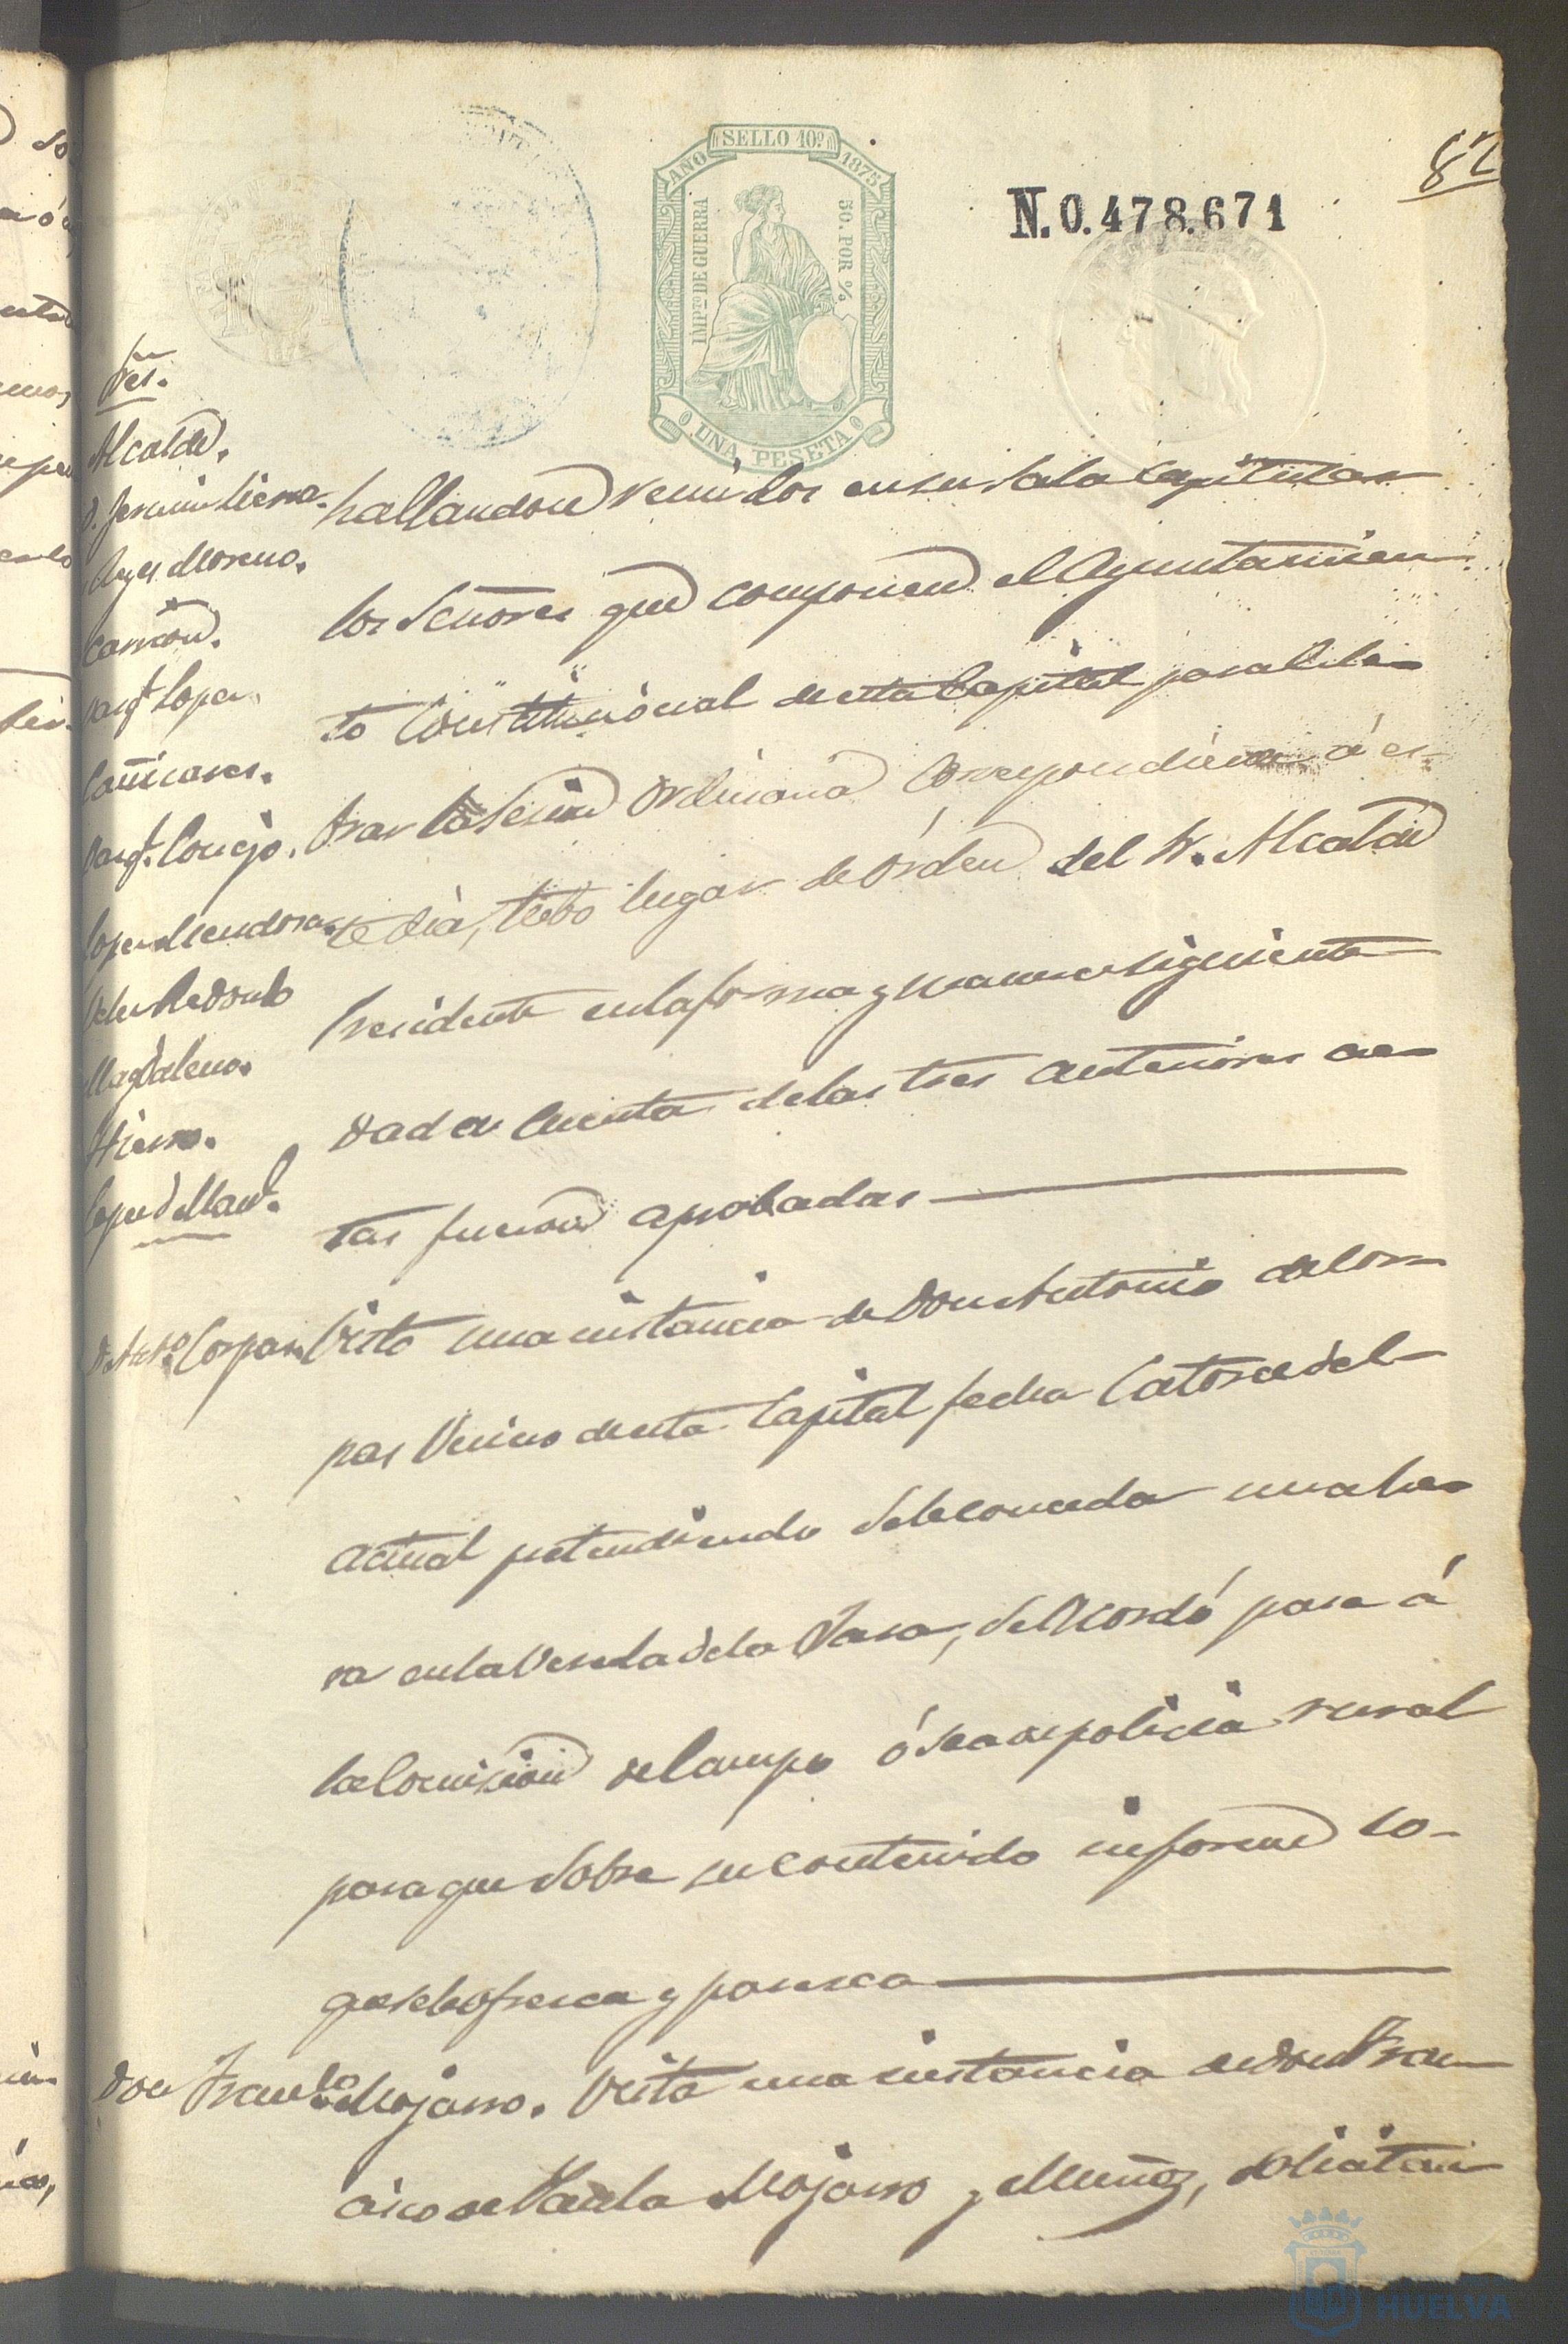 82
SELLO 10º
AÑO 1875
IMPTO DE GUERRA
50. POR %
UNA PESETA
N. 0.478.671
Sres.
Alcalde.
Reyes Moreno.
Garrido.
Sanz Lopez
Cañizares.
Lopez Mendoza
Redondo
Magdaleno.
Hierro.
hallandose reunidos en su Sala Capitular
los Señores que componen el Ayuntamien-
to Constitucional de esta Capital para cele-
brar la Sesion ordinaria correspondiente á es-
te dia, tubo lugar de órden del Sr. Alcalde
Presidente en la forma y manera siguiente
Dada cuenta de las tres anteriores ac-
tas fueron aprobadas
Visto una instancia de Don Antonio de Cor-
pas vecino de esta Capital fecha catorce del
actual pretendiendo se le conceda una ha-
za en la Vereda de la Dara, se acordó pase á
la Comision de Campo ó sea de policia rural
para que sobre su contenido informe lo
que se le ofrezca y paresca
Don Franco. Mojarro. Vista una instancia de Don Fran-
cisco de Paula Mojarro y Muñoz, solicitan-
HUELVA